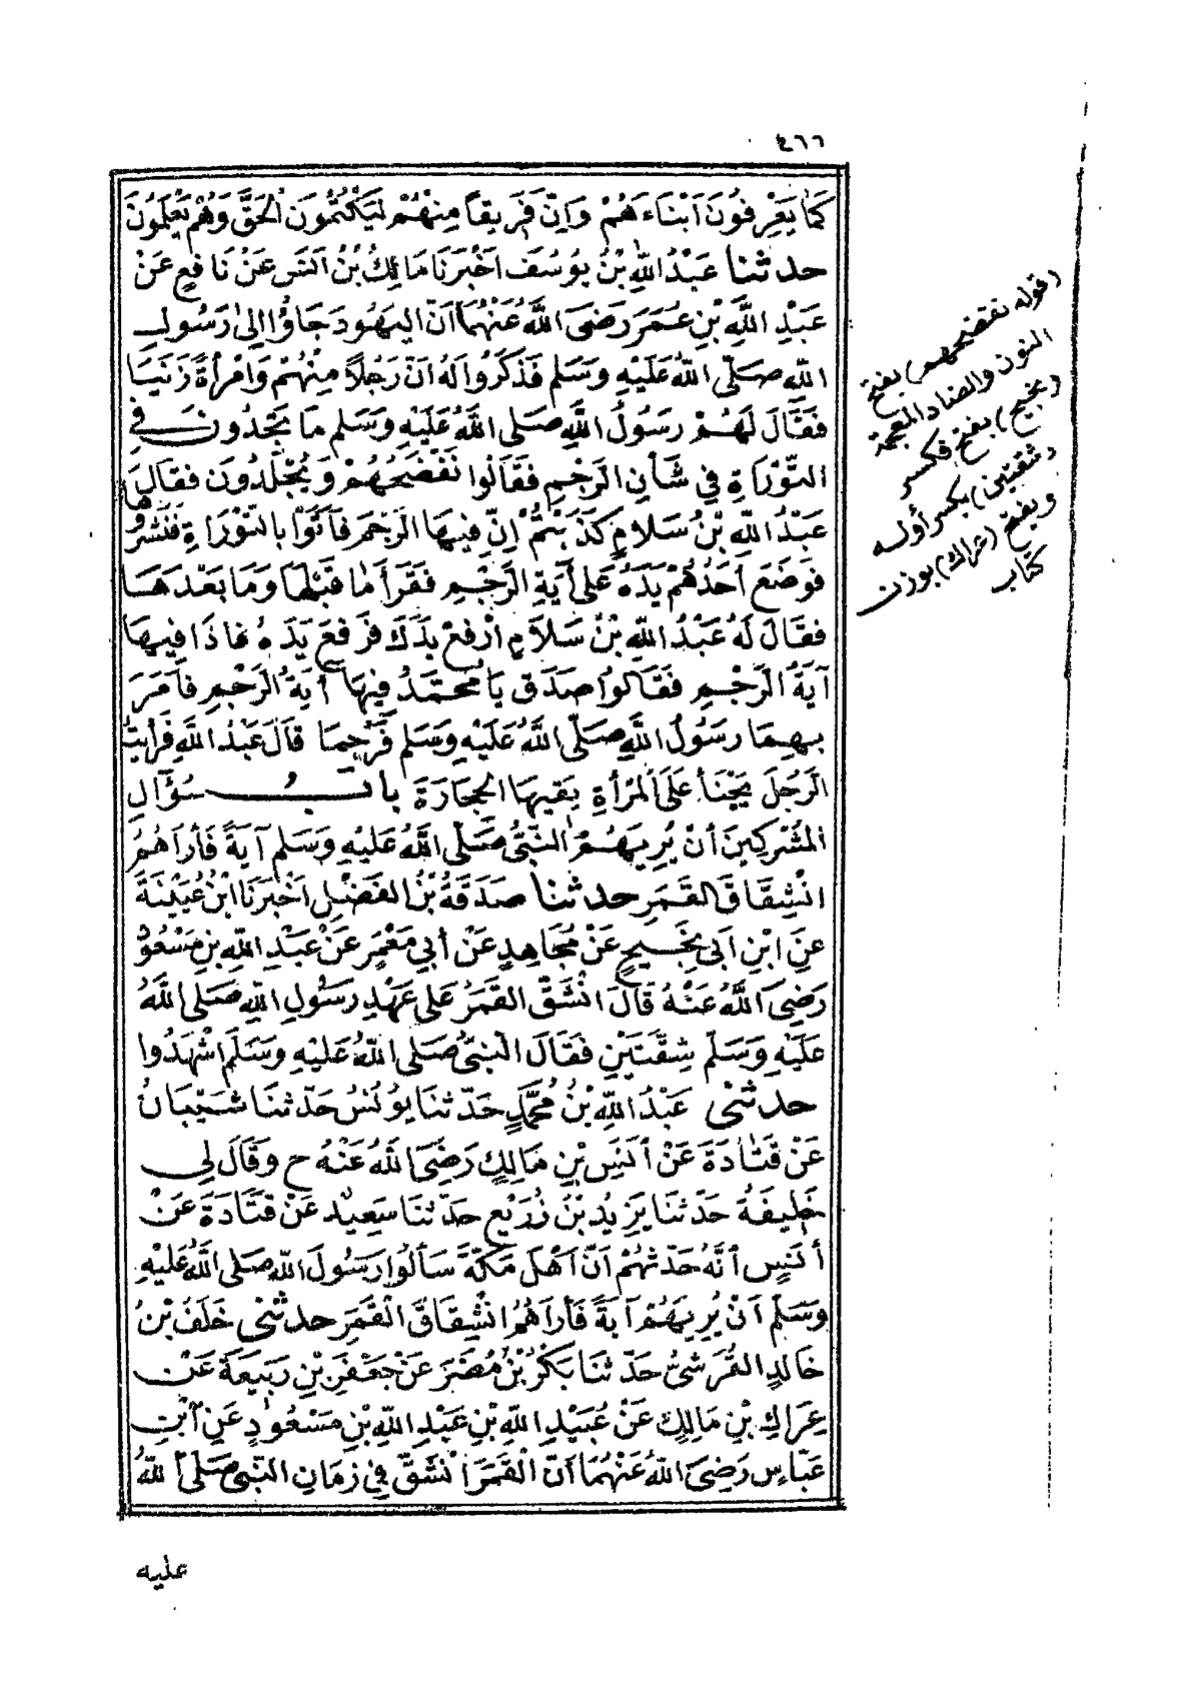 ٤٦٦
كَمَا يَعْرِفُونَ أَبْنَاءَهُمْ وَإِنَّ فَرِيقًا مِنْهُمْ لَيَكْتُمُونَ الْحَقَّ وَهُمْ يَعْلَمُونَ
حدثنا عَبْدُ اللهِ بْنُ يُوسُفَ أَخْبَرَنَا مَالِكُ بْنُ أَنَسٍ عَنْ نَافِعٍ عَنْ
عَبْدِ اللهِ بْنِ عُمَرَ رَضِيَ اللهُ عَنْهُمَا أَنَّ الْيَهُودَ جَاؤُا إِلَى رَسُولِ
اللهِ صَلَّى اللهُ عَلَيْهِ وَسَلَّمَ فَذَكَرُوا لَهُ أَنَّ رَجُلًا مِنْهُمْ وَامْرَأَةً زَنَيَا
فَقَالَ لَهُمْ رَسُولُ اللهِ صَلَّى اللهُ عَلَيْهِ وَسَلَّمَ مَا تَجِدُونَ فِي
التَّوْرَاةِ فِي شَأْنِ الرَّجْمِ فَقَالُوا نَفْضَحُهُمْ وَيُجْلَدُونَ فَقَالَ
عَبْدُ اللهِ بْنُ سَلَامٍ كَذَبْتُمْ إِنَّ فِيهَا الرَّجْمَ فَأَتَوْا بِالتَّوْرَاةِ فَنَشَرُوهَا
فَوَضَعَ أَحَدُهُمْ يَدَهُ عَلَى آيَةِ الرَّجْمِ فَقَرَأَ مَا قَبْلَهَا وَمَا بَعْدَهَا
فَقَالَ لَهُ عَبْدُ اللهِ بْنُ سَلَامٍ ارْفَعْ يَدَكَ فَرَفَعَ يَدَهُ فَإِذَا فِيهَا
آيَةُ الرَّجْمِ فَقَالُوا صَدَقَ يَا مُحَمَّدُ فِيهَا آيَةُ الرَّجْمِ فَأَمَرَ
بِهِمَا رَسُولُ اللهِ صَلَّى اللهُ عَلَيْهِ وَسَلَّمَ فَرُجِمَا قَالَ عَبْدُ اللهِ فَرَأَيْتُ
الرَّجُلَ يَجْنَأُ عَلَى الْمَرْأَةِ يَقِيهَا الْحِجَارَةَ بَابُ سُؤَالِ
الْمُشْرِكِينَ أَنْ يُرِيَهُمُ النَّبِيُّ صَلَّى اللهُ عَلَيْهِ وَسَلَّمَ آيَةً فَأَرَاهُمُ
انْشِقَاقَ الْقَمَرِ حدثنا صَدَقَةُ بْنُ الْفَضْلِ أَخْبَرَنَا ابْنُ عُيَيْنَةَ
عَنِ ابْنِ أَبِي نَجِيحٍ عَنْ مُجَاهِدٍ عَنْ أَبِي مَعْمَرٍ عَنْ عَبْدِ اللهِ بْنِ مَسْعُودٍ
رَضِيَ اللهُ عَنْهُ قَالَ انْشَقَّ الْقَمَرُ عَلَى عَهْدِ رَسُولِ اللهِ صَلَّى اللهُ
عَلَيْهِ وَسَلَّمَ شِقَّتَيْنِ فَقَالَ النَّبِيُّ صَلَّى اللهُ عَلَيْهِ وَسَلَّمَ اشْهَدُوا
حدثني عَبْدُ اللهِ بْنُ مُحَمَّدٍ حَدَّثَنَا يُونُسُ حَدَّثَنَا شَيْبَانُ
عَنْ قَتَادَةَ عَنْ أَنَسِ بْنِ مَالِكٍ رَضِيَ اللهُ عَنْهُ ح وَقَالَ لِي
خَلِيفَةُ حَدَّثَنَا يَزِيدُ بْنُ زُرَيْعٍ حَدَّثَنَا سَعِيدٌ عَنْ قَتَادَةَ عَنْ
أَنَسٍ أَنَّهُ حَدَّثَهُمْ أَنَّ أَهْلَ مَكَّةَ سَأَلُوا رَسُولَ اللهِ صَلَّى اللهُ عَلَيْهِ
وَسَلَّمَ أَنْ يُرِيَهُمْ آيَةً فَأَرَاهُمُ انْشِقَاقَ الْقَمَرِ حدثني خَلَفُ بْنُ
خَالِدٍ الْقُرَشِيُّ حَدَّثَنَا بَكْرُ بْنُ مُضَرَ عَنْ جَعْفَرِ بْنِ رَبِيعَةَ عَنْ
عِرَاكِ بْنِ مَالِكٍ عَنْ عُبَيْدِ اللهِ بْنِ عَبْدِ اللهِ بْنِ مَسْعُودٍ عَنِ ابْنِ
عَبَّاسٍ رَضِيَ اللهُ عَنْهُمَا أَنَّ الْقَمَرَ انْشَقَّ فِي زَمَانِ النَّبِيِّ صَلَّى اللهُ
عليه
(قوله نفضحهم) بفتح
النون والضاد المعجمة
(نجيح) بفتح فكسر
(شقتين) بكسر أوله
ويفتح (عراك) بوزن
كتاب